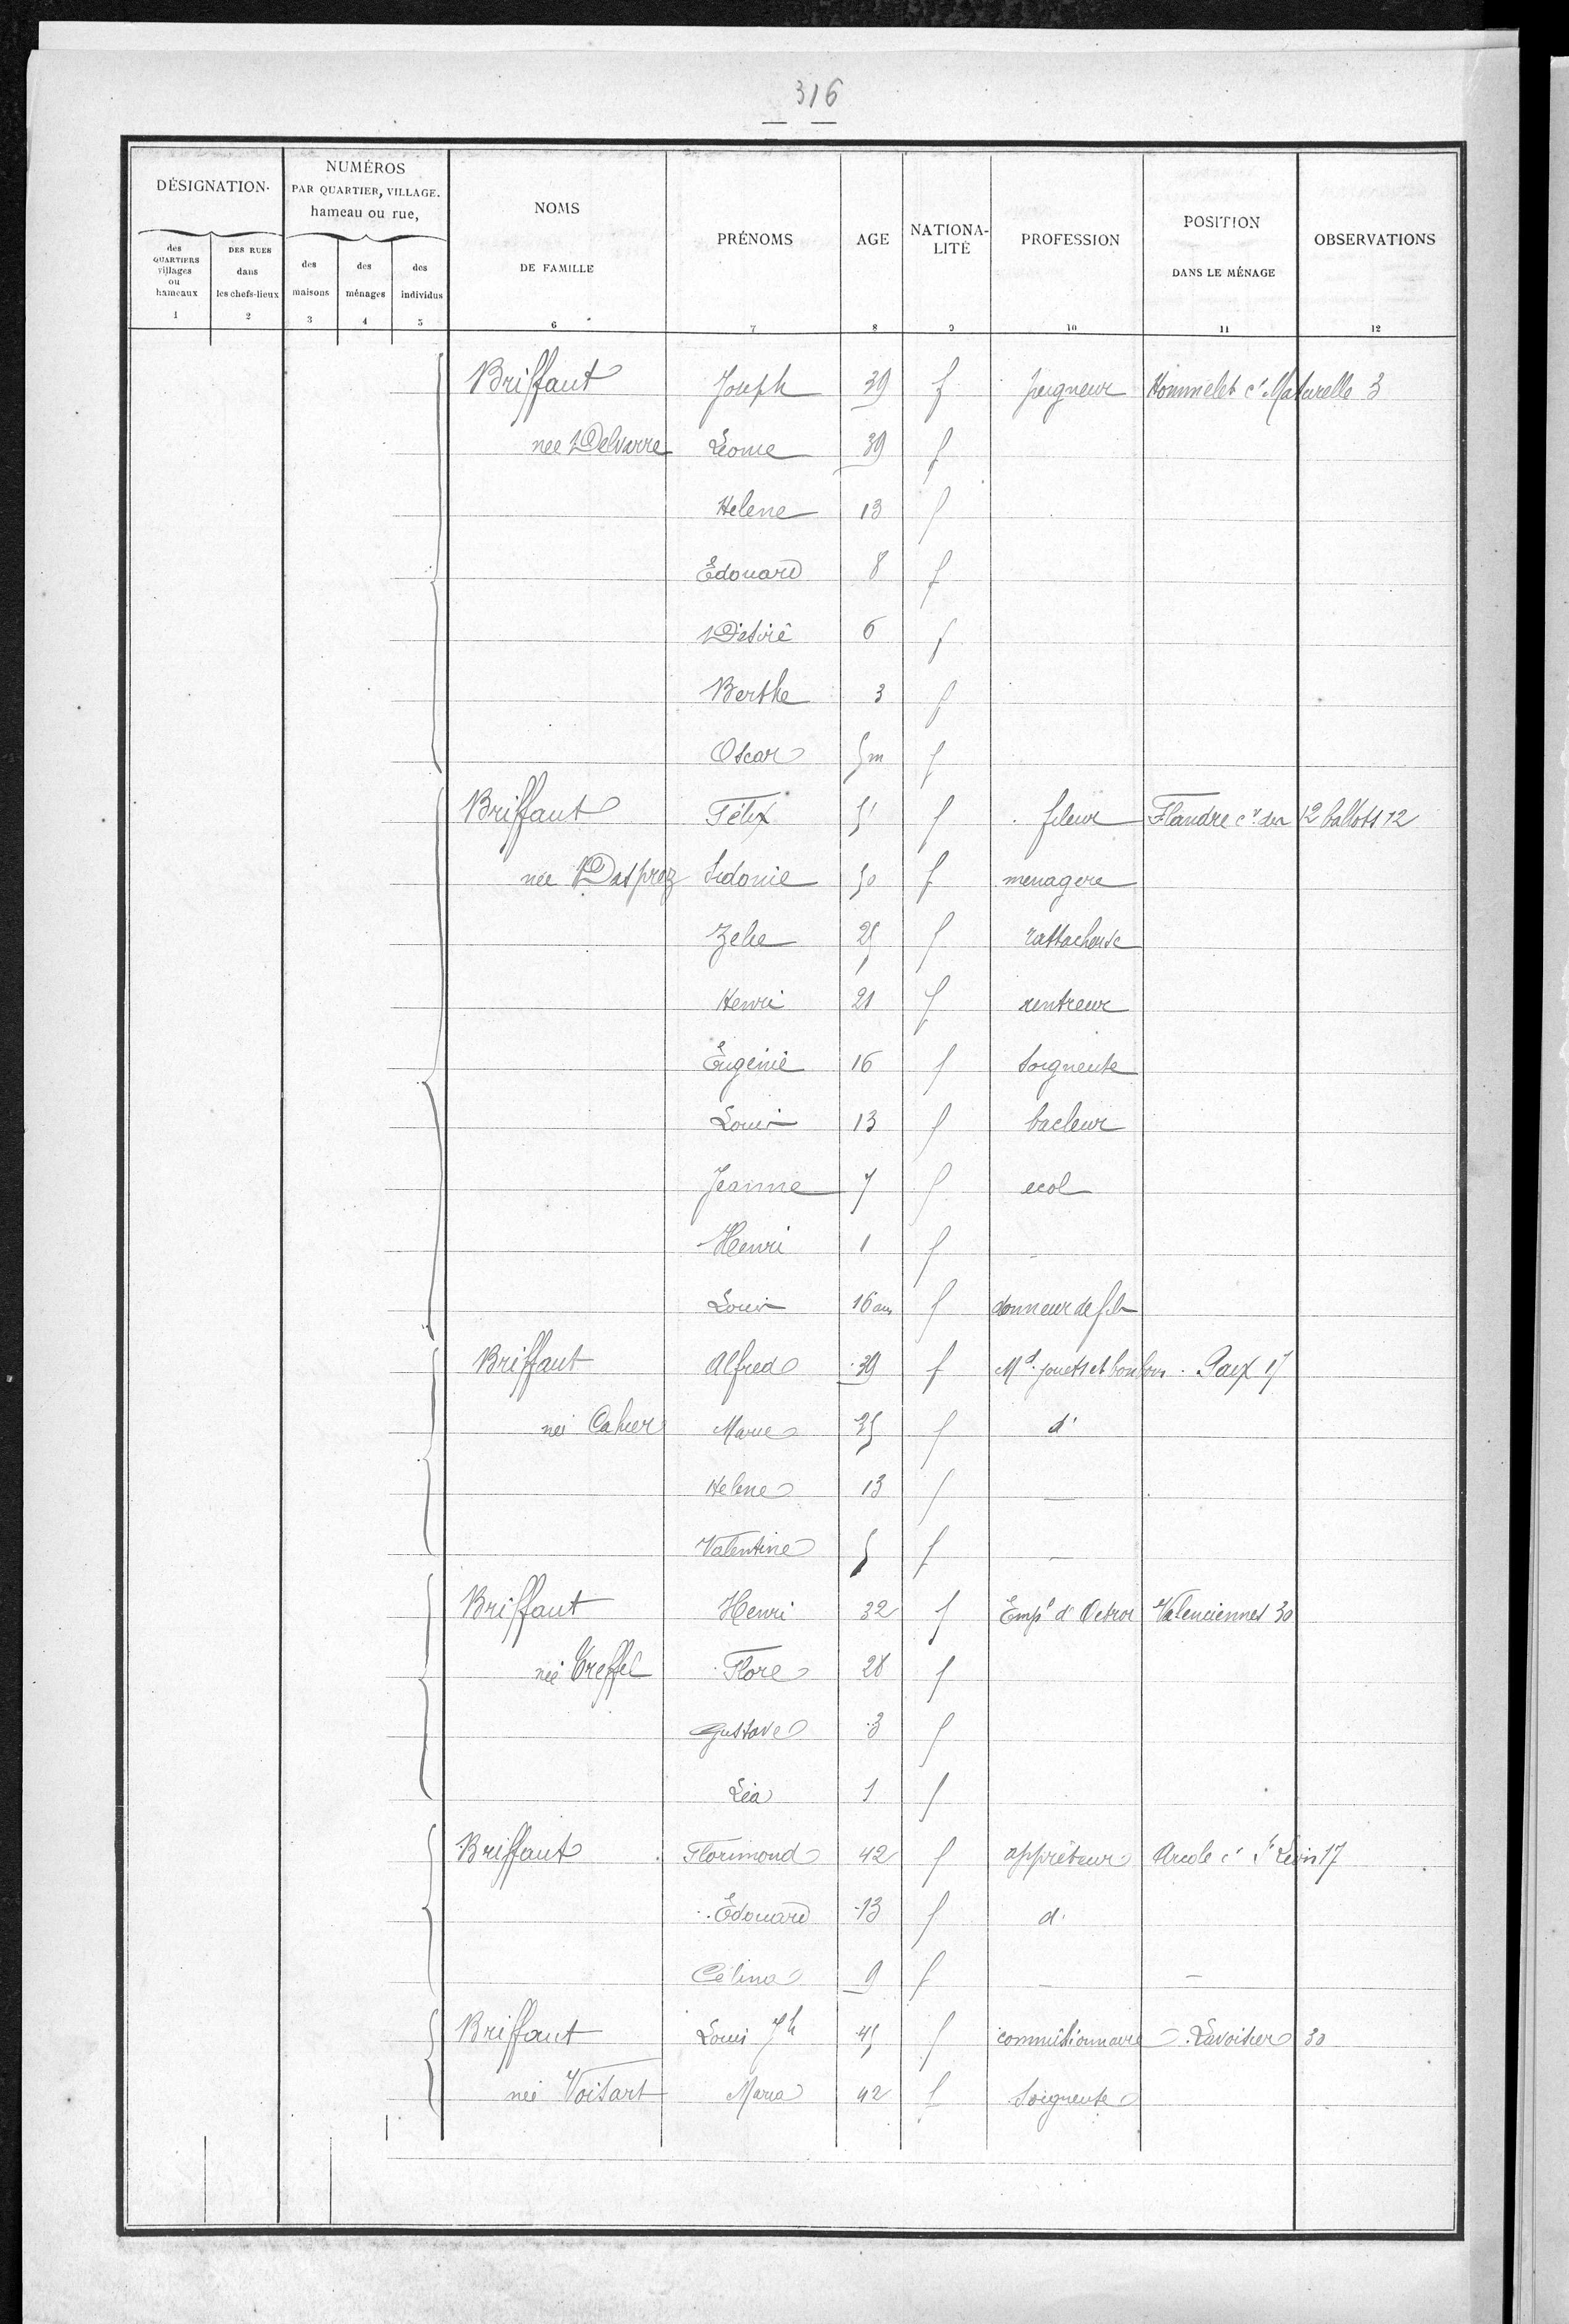 316
DÉSIGNATION
NUMÉROS
PAR QUARTIER, VILLAGE.
hameau ou rue,
des QUARTIERS villages ou hameaux
DES RUES dans les chefs-lieux
des maisons
des ménages
des individus
NOMS DE FAMILLE
PRÉNOMS
AGE
NATIONALITÉ
PROFESSION
POSITION DANS LE MÉNAGE
OBSERVATIONS
1 2 3 4 5 6 7 8 9 10 11 12
Briffaut Joseph 39 f peigneur Hommelet cr 3
née Delvarre Leonie 39 f
Helene 13 f
Edouard 8 f
Désiré 6 f
Berthe 3 f
Oscar 5m f
Briffaut Félix 51 f fileur Flandre cr des 12 ballots 12
née Dasprez Sidonie 50 f menagere
Zelie 25 f rattacheuse
Henri 21 f rentreur
Eugénie 16 f soigneuse
Louis 13 f bacleur
Jeanne 7 f ecol
Henri 1 f
Louis 16 ans f donneur de fils
Briffaut Alfred 39 f Md jouets et bonbons Paix 17
née Cahier Marie 35 f d°
Helene 13 f —
Valentine 5 f —
Briffaut Henri 32 f Empé d'Octroi Valenciennes 30
née Treffel Flore 28 f
Gustave 3 f
Léa 1 f
Briffaut Florimond 42 f apprêteur Arcole cr St 17
Edouard 13 f d°
Célina 9 f — —
Briffaut Louis Jh 45 f commissionnaire Lavoisier 30
née Voisart Maria 42 f Soigneuse